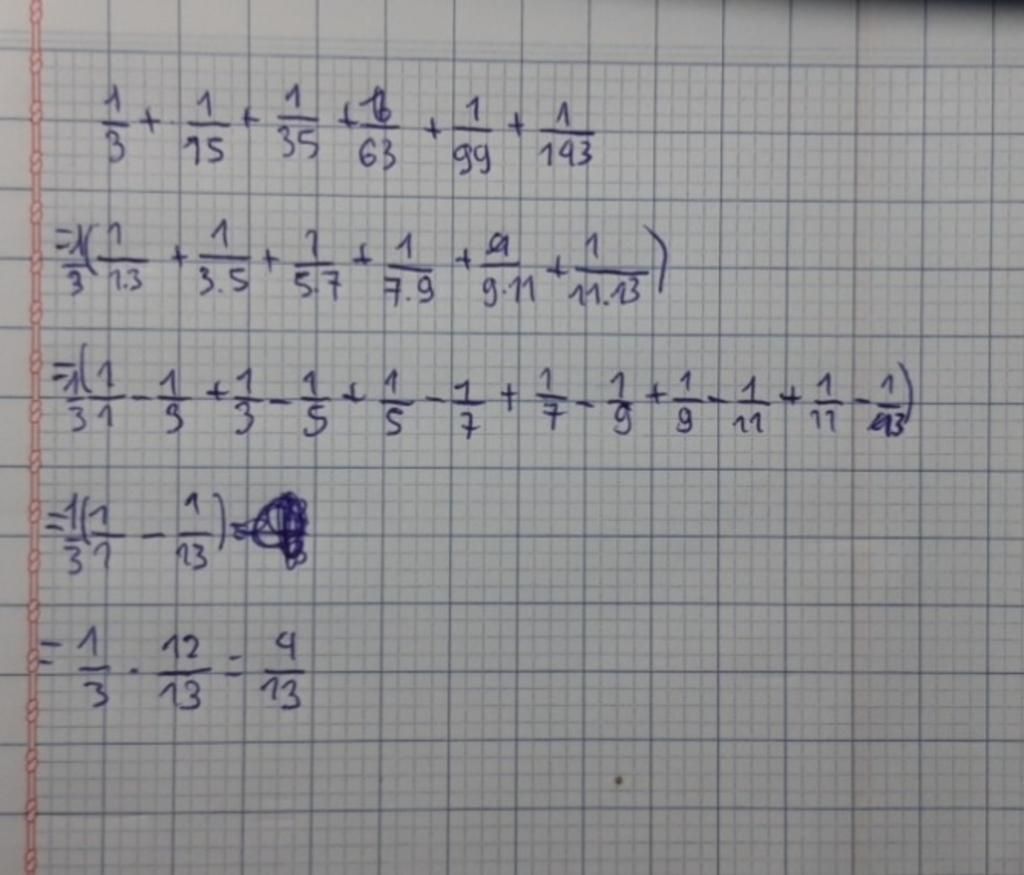 1/3 + 1/15 + 1/35 + 1/63 + 1/99 + 1/143
= 1/3 ( 1/1.3 + 1/3.5 + 1/5.7 + 1/7.9 + 1/9.11 + 1/11.13 )
= 1/3 ( 1/1 - 1/3 + 1/3 - 1/5 + 1/5 - 1/7 + 1/7 - 1/9 + 1/9 - 1/11 + 1/11 - 1/13 )
= 1/3 ( 1/1 - 1/13 ) =
= 1/3 . 12/13 = 4/13